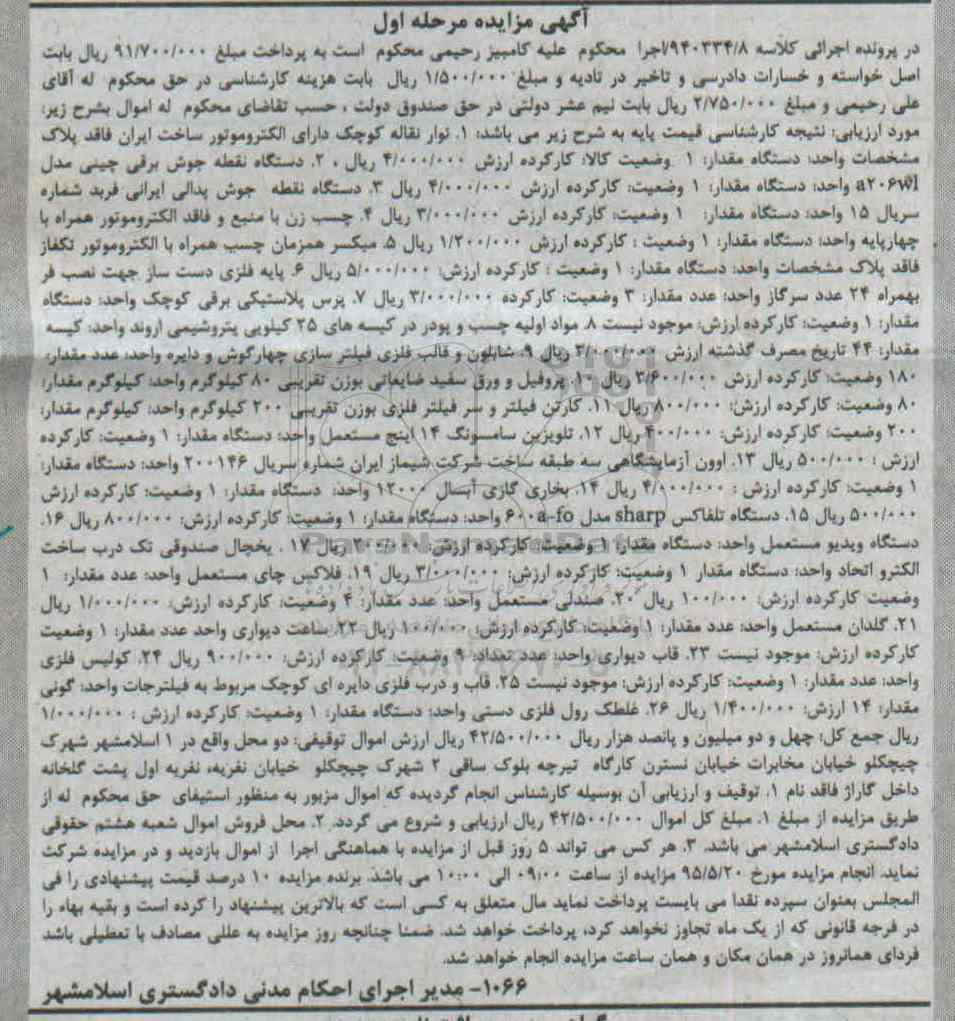 آگهی مزایده مرحله اول
در پرونده اجرائی کلاسه ۹۴۰۳۳۴/۸اجرا محکوم علیه کامبیز رحیمی محکوم است به پرداخت مبلغ ۹۱/۷۰۰/۰۰۰ ریال بابت
اصل خواسته و خسارات دادرسی و تاخیر در تادیه و مبلغ ۱/۵۰۰/۰۰۰ ریال بابت هزینه کارشناسی در حق محکوم له آقای
علی رحیمی و مبلغ ۲/۷۵۰/۰۰۰ ریال بابت نیم عشر دولتی در حق صندوق دولت ، حسب تقاضای محکوم له اموال بشرح زیر:
مورد ارزیابی: نتیجه کارشناسی قیمت پایه به شرح زیر می باشد: ۱. نوار نقاله کوچک دارای الکتروموتور ساخت ایران فاقد پلاک
مشخصات واحد: دستگاه مقدار: ۱ وضعیت کالا: کارکرده ارزش ۴/۰۰۰/۰۰۰ ریال ، ۲. دستگاه نقطه جوش برقی چینی مدل
a۲۰۶wl واحد: دستگاه مقدار: ۱ وضعیت: کارکرده ارزش ۴/۰۰۰/۰۰۰ ریال ۳. دستگاه نقطه جوش پدالی ایرانی فرید شماره
سریال ۱۵ واحد: دستگاه مقدار: ۱ وضعیت: کارکرده ارزش ۳/۰۰۰/۰۰۰ ریال ۴. چسب زن با منبع و فاقد الکتروموتور همراه با
چهارپایه واحد: دستگاه مقدار: ۱ وضعیت : کارکرده ارزش ۱/۲۰۰/۰۰۰ ریال ۵. میکسر همزمان چسب همراه با الکتروموتور تکفاز
فاقد پلاک مشخصات واحد: دستگاه مقدار: ۱ وضعیت : کارکرده ارزش: ۵/۰۰۰/۰۰۰ ریال ۶. پایه فلزی دست ساز جهت نصب فر
بهمراه ۲۴ عدد سرگاز واحد: عدد مقدار: ۳ وضعیت: کارکرده ۳/۰۰۰/۰۰۰ ریال ۷. پرس پلاستیکی برقی کوچک واحد: دستگاه
مقدار: ۱ وضعیت: کارکرده ارزش: موجود نیست ۸. مواد اولیه چسب و پودر در کیسه های ۲۵ کیلویی پتروشیمی اروند واحد: کیسه
مقدار: ۴۴ تاریخ مصرف گذشته ارزش ۳/۰۰۰/۰۰۰ ریال ۹. شابلون و قالب فلزی فیلتر سازی چهارگوش و دایره واحد: عدد مقدار:
۱۸۰ وضعیت: کارکرده ارزش ۳/۶۰۰/۰۰۰ ریال ۱۰. پروفیل و ورق سفید ضایعاتی بوزن تقریبی ۸۰ کیلوگرم واحد: کیلوگرم مقدار:
۸۰ وضعیت: کارکرده ارزش: ۸۰۰/۰۰۰ ریال ۱۱. کارتن فیلتر و سر فیلتر فلزی بوزن تقریبی ۲۰۰ کیلوگرم واحد: کیلوگرم مقدار:
۲۰۰ وضعیت: کارکرده ارزش: ۴۰۰/۰۰۰ ریال ۱۲. تلویزین سامسونگ ۱۴ اینچ مستعمل واحد: دستگاه مقدار: ۱ وضعیت: کارکرده
ارزش : ۵۰۰/۰۰۰ ریال ۱۳. اوون آزمایشگاهی سه طبقه ساخت شرکت شیماز ایران شماره سریال ۲۰۰۱۴۶ واحد: دستگاه مقدار:
۱ وضعیت: کارکرده ارزش : ۴/۰۰۰/۰۰۰ ریال ۱۴. بخاری گازی آبسال ۱۲۰۰۰ واحد: دستگاه مقدار: ۱ وضعیت: کارکرده ارزش
۵۰۰/۰۰۰ ریال ۱۵. دستگاه تلفاکس sharp مدل ۶۰۰a-fo واحد: دستگاه مقدار: ۱ وضعیت: کارکرده ارزش: ۸۰۰/۰۰۰ ریال ۱۶.
دستگاه ویدیو مستعمل واحد: دستگاه مقدار: ۱ وضعیت: کارکرده ارزش: ۳۰۰/۰۰۰ ریال ۱۷ . یخچال صندوقی تک درب ساخت
الکترو اتحاد واحد: دستگاه مقدار ۱ وضعیت: کارکرده ارزش: ۳/۰۰۰/۰۰۰ ریال ۱۹. فلاکس چای مستعمل واحد: عدد مقدار: ۱
وضعیت کارکرده ارزش: ۱۰۰/۰۰۰ ریال ۲۰. صندلی مستعمل واحد: عدد مقدار: ۴ وضعیت: کارکرده ارزش: ۱/۰۰۰/۰۰۰ ریال
۲۱. گلدان مستعمل واحد: عدد مقدار: ۱ وضعیت: کارکرده ارزش: ۱۰۰/۰۰۰ ریال ۲۲. ساعت دیواری واحد عدد مقدار: ۱ وضعیت
کارکرده ارزش: موجود نیست ۲۳. قاب دیواری واحد: عدد تعداد: ۹ وضعیت: کارکرده ارزش: ۹۰۰/۰۰۰ ریال ۲۴. کولیس فلزی
واحد: عدد مقدار: ۱ وضعیت: کارکرده ارزش: موجود نیست ۲۵. قاب و درب فلزی دایره ای کوچک مربوط به فیلترجات واحد: گونی
مقدار: ۱۴ ارزش: ۱/۴۰۰/۰۰۰ ریال ۲۶. غلطک رول فلزی دستی واحد: دستگاه مقدار: ۱ وضعیت: کارکرده ارزش : ۱/۰۰۰/۰۰۰
ریال جمع کل: چهل و دو میلیون و پانصد هزار ریال ۴۲/۵۰۰/۰۰۰ ریال ارزش اموال توقیفی: دو محل واقع در ۱ اسلامشهر شهرک
چیچکلو خیابان مخابرات خیابان نسترن کارگاه تیرچه بلوک ساقی ۲ شهرک چیچکلو خیابان نفریه، نفریه اول پشت گلخانه
داخل گاراژ فاقد نام ۱. توقیف و ارزیابی آن بوسیله کارشناس انجام گردیده که اموال مزبور به منظور استیفای حق محکوم له از
طریق مزایده از مبلغ ۱. مبلغ کل اموال ۴۲/۵۰۰/۰۰۰ ریال ارزیابی و شروع می گردد. ۲. محل فروش اموال شعبه هشتم حقوقی
دادگستری اسلامشهر می باشد. ۳. هر کس می تواند ۵ روز قبل از مزایده با هماهنگی اجرا از اموال بازدید و در مزایده شرکت
نماید. انجام مزایده مورخ ۹۵/۵/۲۰ مزایده از ساعت ۰۹:۰۰ الی ۱۰:۰۰ می باشد. برنده مزایده ۱۰ درصد قیمت پیشنهادی را فی
المجلس بعنوان سپرده نقدا می بایست پرداخت نماید مال متعلق به کسی است که بالاترین پیشنهاد را کرده است و بقیه بهاء را
در فرجه قانونی که از یک ماه تجاوز نخواهد کرد، پرداخت خواهد شد. ضمنا چنانچه روز مزایده به عللی مصادف با تعطیلی باشد
فردای همانروز در همان مکان و همان ساعت مزایده انجام خواهد شد.
۱۰۶۶- مدیر اجرای احکام مدنی دادگستری اسلامشهر